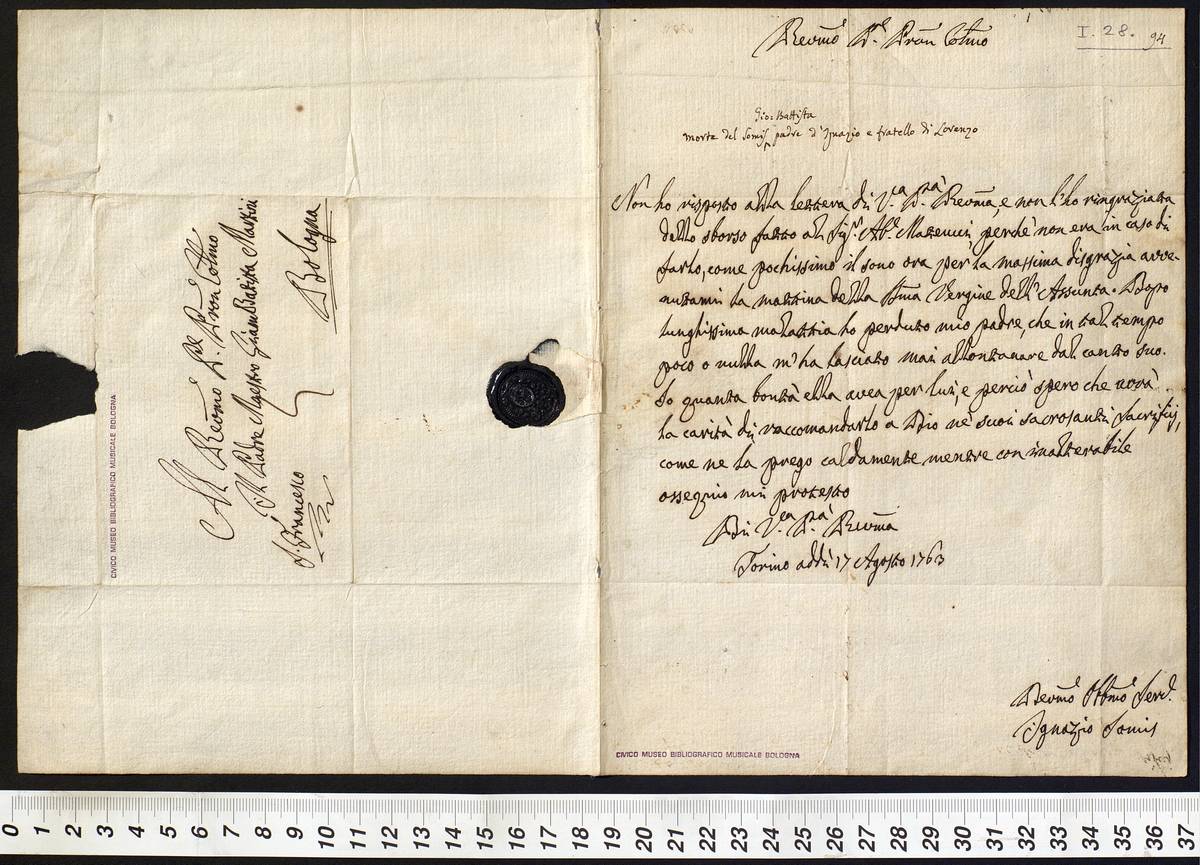 Al Revmo Pre Pron Colmo
Il Padre Maestro Giambatista Martini
Bologna
S. Francesco
CIVICO MUSEO BIBLIOGRAFICO MUSICALE BOLOGNA
I. 28.
94
Revmo Pre Pron Colmo
Gio: Battista
morte del Somis padre d'Ignazio e fratello di Lorenzo
Non ho risposto alla lettera di V.ra P.tà Revma, e non l'ho ringraziata
dello sborso fatto al Sigr. Ab.e Matteucci, perchè non era in caso di
farlo, come pochissimo il sono ora per la massima disgrazia avve-
nutami la mattina della Bma Vergine dell'Assunta. Dopo
lunghissima malattia ho perduto mio padre, che in tal tempo
poco o nulla m'ha lasciato mai allontanare dal canto suo.
So quanta bontà ella avea per lui, e perciò spero che avrà
la carità di raccomandarlo a Dio ne' suoi sacrosanti Sacrifici,
come ne la prego caldamente, mentre con inalterabile
ossequio mi protesto
Di V.ra P.tà Revma
Torino addì 17 Agosto 1763
Devmo Obbmo Serv.
Ignazio Somis
CIVICO MUSEO BIBLIOGRAFICO MUSICALE BOLOGNA
0 1 2 3 4 5 6 7 8 9 10 11 12 13 14 15 16 17 18 19 20 21 22 23 24 25 26 27 28 29 30 31 32 33 34 35 36 37